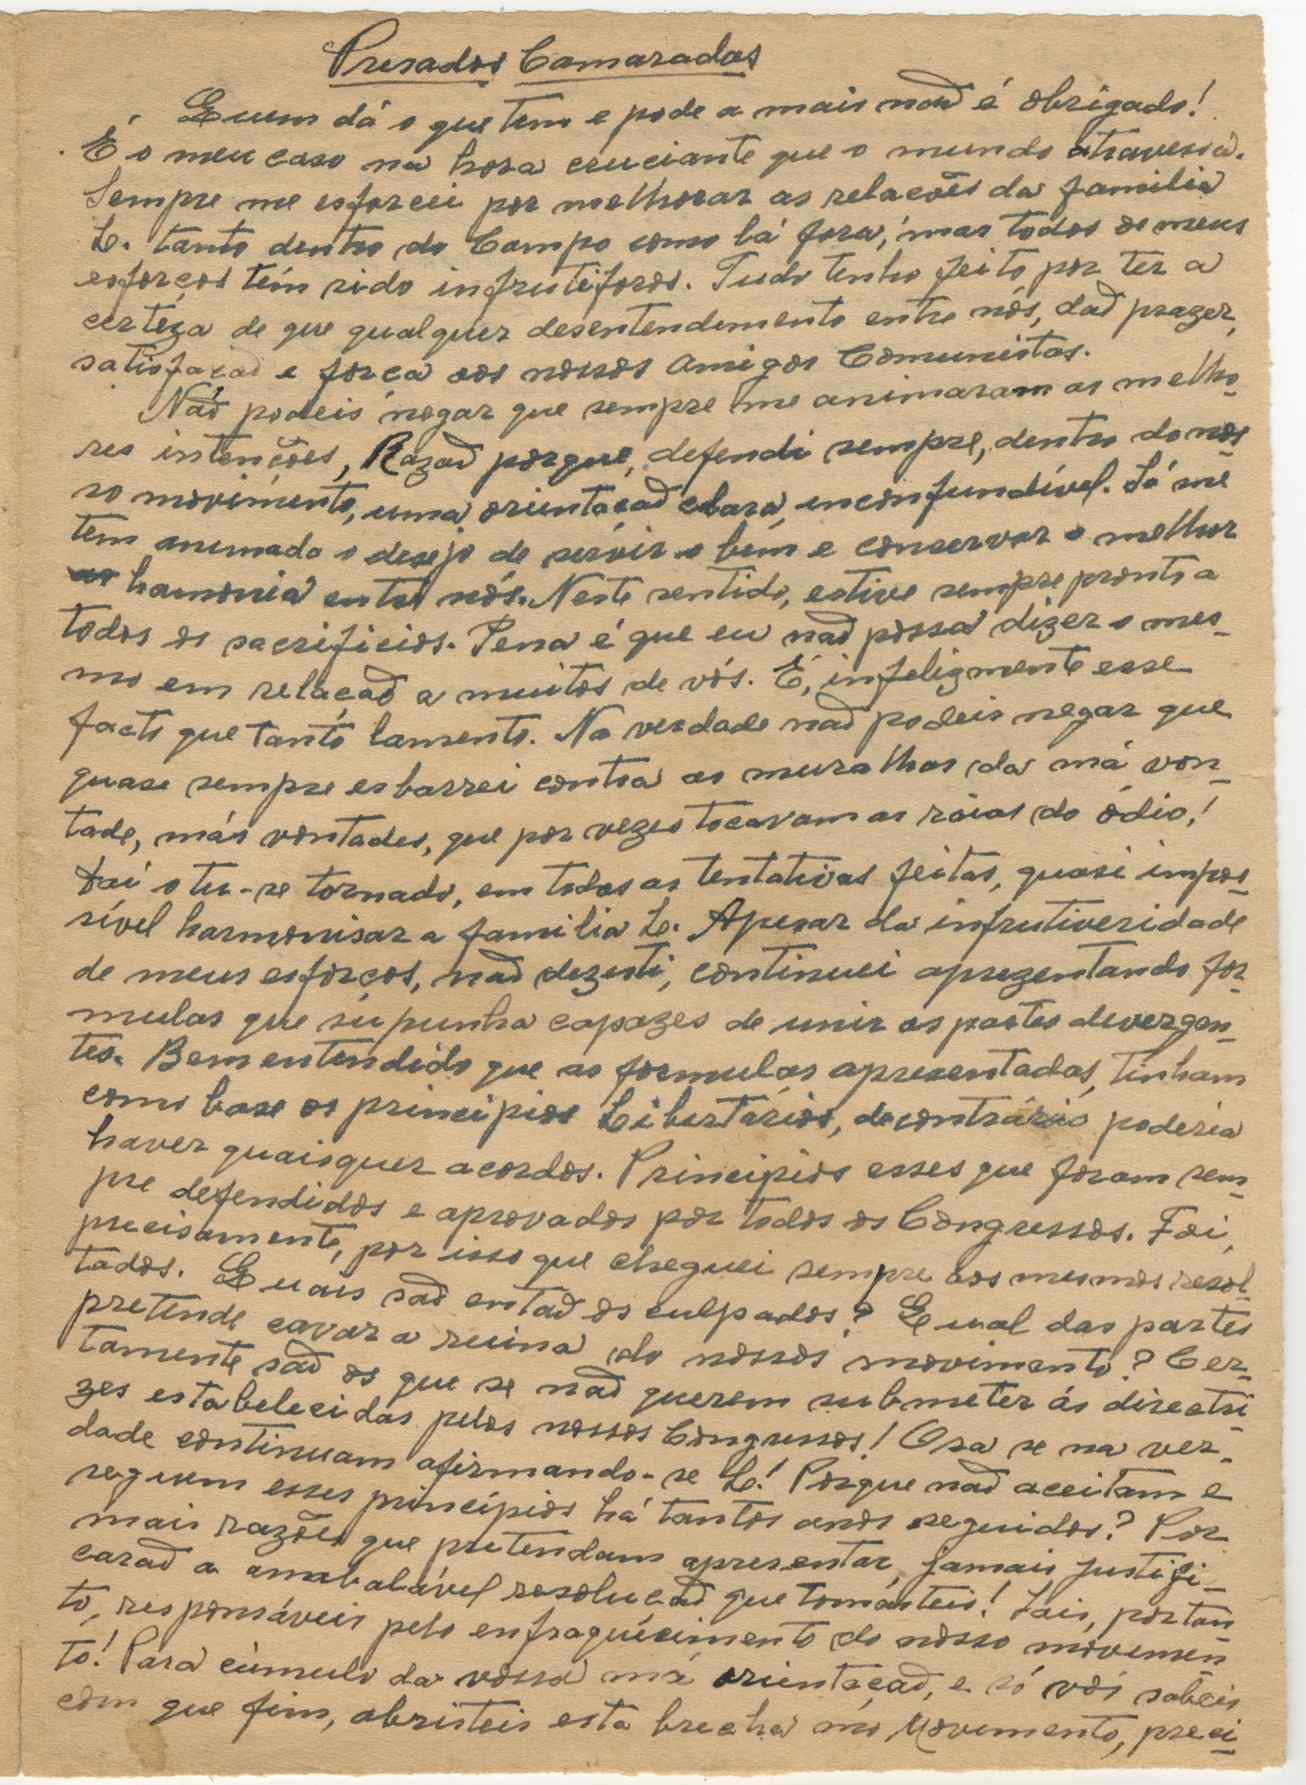 Presados Camaradas
Quem dá o que tem e pode a mais não é obrigado!
É o meu caso na hora cruciante que o mundo atravessa.
Sempre me esforcei por melhorar as relações da familia
L. tanto dentro do Campo como lá fora, mas todos os meus
esforços têm sido infrutiforos. Tudo tenho feito por ter a
certeza de que qualquer desentendimento entre nós, daõ prazer,
satisfaçaõ e força aos nossos amigos Comunistas.
Naõ podeis negar que sempre me animaram as melho-
res intenções, Razaõ porque, defendi sempre, dentro do nos-
so movimento, uma orientaçaõ clara, inconfundível. Só me
tem animado o desejo de servir o bem e conservar o melhor
hamonia entre nós. Neste sentido, estive sempre pronto a
todos os sacrificios. Pena é que eu naõ possa dizer o mes-
mo em relaçaõ a muitos de vós. É, infelizmente esse
facto que tanto lamento. Na verdade naõ podeis negar que
quase sempre esbarrei contra as muralhas da má von-
tade, más vontades, que por vezes tocavam as raias do ódio!
Daí o ter-se tornado, em todas as tentativas feitas, quasi impos-
sível harmonisar a familia L. Apesar da infrutiveridade
de meus esforços, naõ dezisti, continuei aprezentando for-
mulas que supunha capazes de unir as partes divergen-
tes. Bem entendido que as formulas apresentadas, tinham
como base os principios Libertários, do contrário poderia
haver quaisquer acordos. Principios esses que foram sem-
pre defendidos e aprovados por todos os Congressos. Foi,
precisamente, por isso que cheguei sempre aos mesmos resol-
tados. Quais saõ entaõ os culpados? Qual das partes
pretende cavar a ruina do nossos movimento? Cer-
tamente saõ os que se naõ querem submeter ás directri
zes estabelecidas pelos nossos Congressos! Ora se na ver-
dade continuam afirmando-se L! Porque naõ aceitam e
seguem esses princípios há tantos anos seguidos? Por
mais razões que pretendam apresentar, jamais justifi-
caraõ a inabalável resoluçaõ que tomasteis! Sais, portan
to, responsáveis pelo enfraquecimento do nosso movimen
to! Para cúmulo da vossa má orientaçaõ, e só vós sabeis
com que fim, abristeis esta brecha no Movimento, preci-